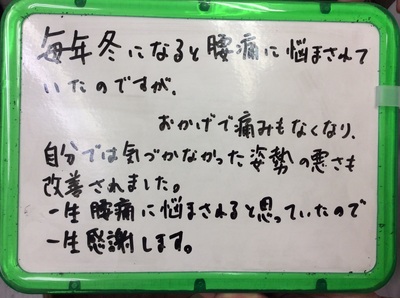 毎年冬になると腰痛に悩まされて
いたのですが、
おかげで痛みもなくなり、
自分では気づかなかった姿勢の悪さも
改善されました。
一生腰痛に悩まされると思っていたので
一生感謝します。